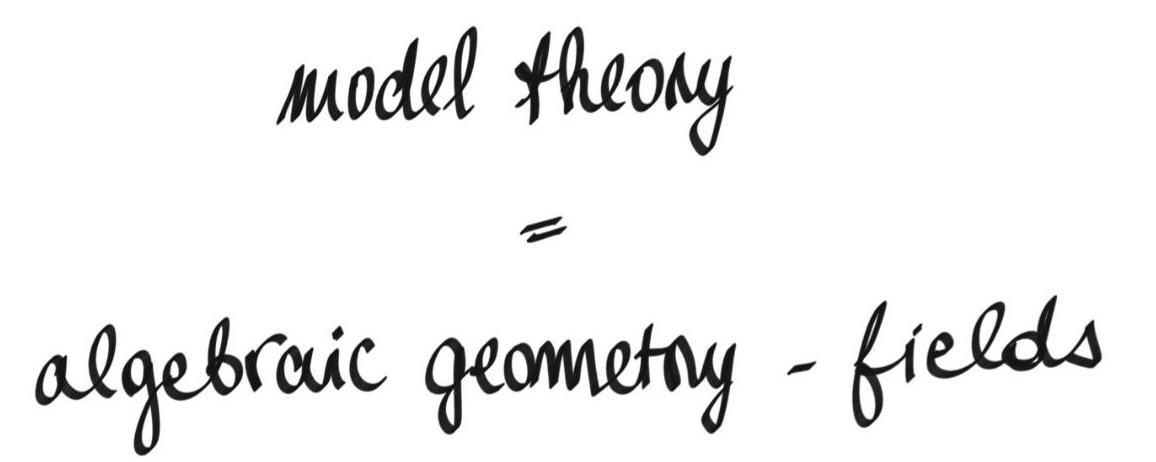 model theory
=
algebraic geometry - fields